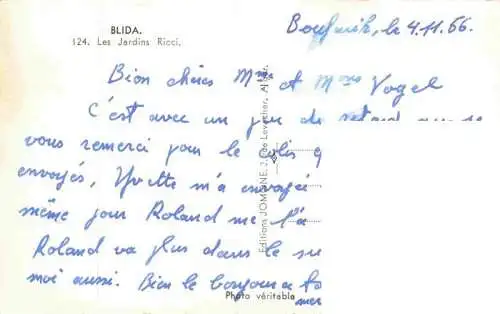 BLIDA.
124. Les Jardins Ricci.
Boufarik, le 4.11.66.
Bien chères Mme et Mons Vogel
C'est avec un peu de retard que je
vous remerci pour le colis
envoyés, Yvette m'a envoyé
même jour Roland me l'a
Roland va plus dans le su
moi aussi. Bien le bonjour a to
mer
Editions JOMONE, 2, Rue Levacher, Alger.
Photo véritable